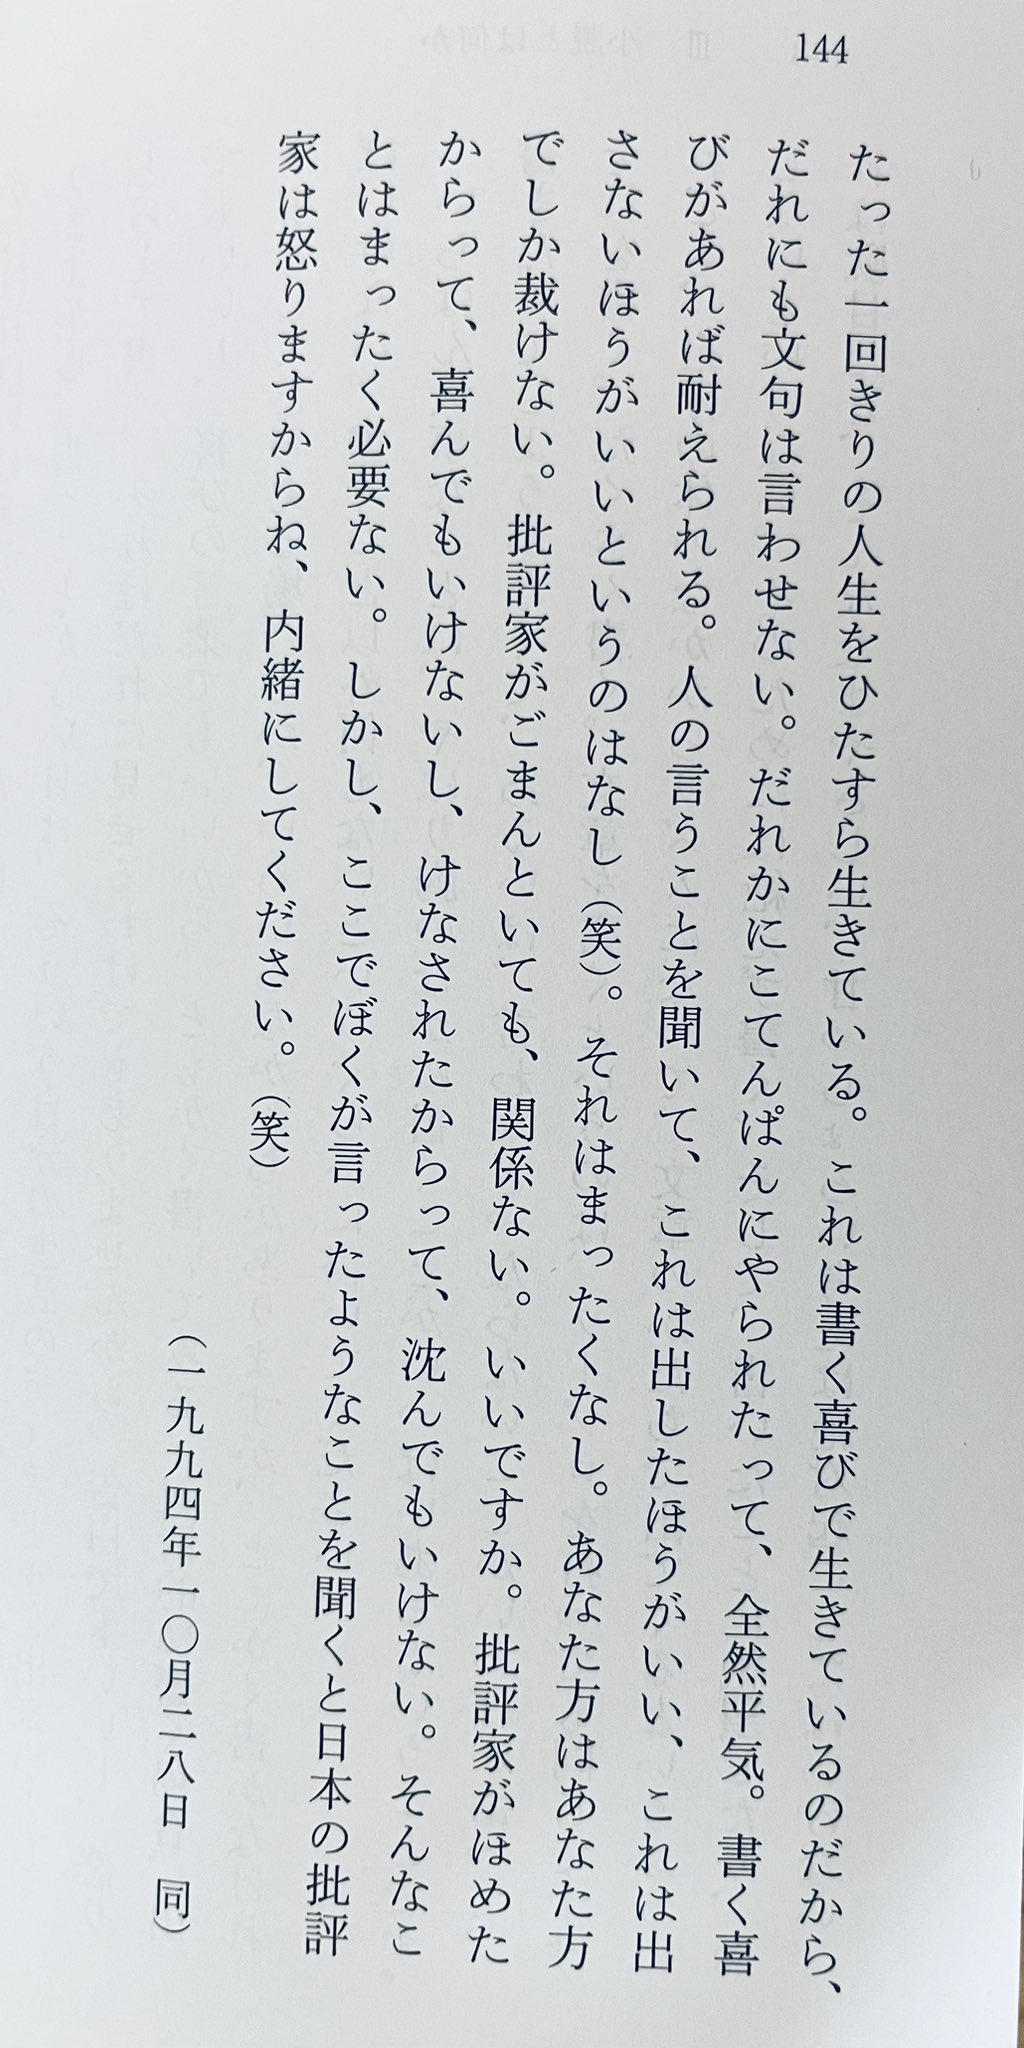 144
たった一回きりの人生をひたすら生きている。これは書く喜びで生きているのだから、
だれにも文句は言わせない。だれかにこてんぱんにやられたって、全然平気。書く喜
びがあれば耐えられる。人の言うことを聞いて、これは出したほうがいい、これは出
さないほうがいいというのはなし(笑)。それはまったくなし。あなた方はあなた方
でしか裁けない。批評家がごまんといても、関係ない。いいですか。批評家がほめた
からって、喜んでもいけないし、けなされたからって、沈んでもいけない。そんなこ
とはまったく必要ない。しかし、ここでぼくが言ったようなことを聞くと日本の批評
家は怒りますからね、内緒にしてください。(笑)
(一九九四年一〇月二八日　同)